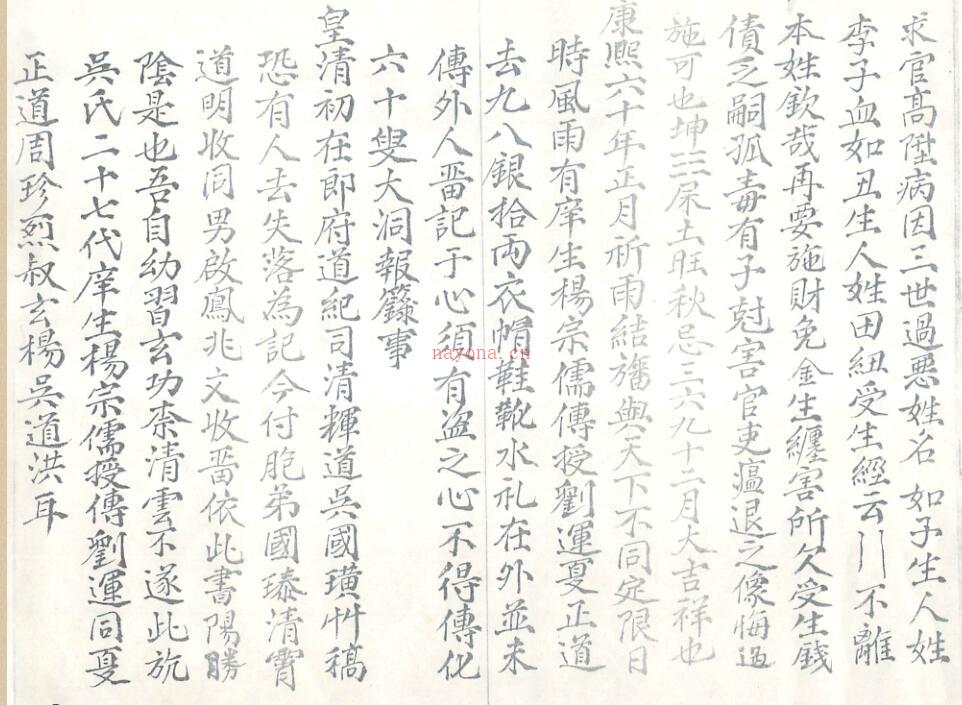 求官高陞病因三世過悪姓名如子生人姓
李子血如丑生人姓田紐受生經云不離
本姓欽哉再要施財免金生纏害所欠受生錢
債乏嗣孤毒有子尅害官吏瘟退之像悔過
施可也坤三屎土旺秋忌三六九十二月大吉祥也
康熙六十年正月祈雨結旛與天下不同定限日
時風雨有庠生楊宗儒傳授劉運夏正道
去九八銀拾両衣帽鞋靴水礼在外並未
傳外人畱記于心須有盗之心不得傳化
六十叟大洞報籙事
皇清初在郎府道紀司清輝道吳國璜艸稿
恐有人去失落為記今付胞弟國瑧清霄
道明收同男啟鳳兆文收畱依此書陽勝
陰是也吾自幼習玄功柰清雲不遂此玧
吳氏二十七代庠生楊宗儒授傳劉運同夏
正道周珍烈叔玄楊吳道洪耳
nayona.cn